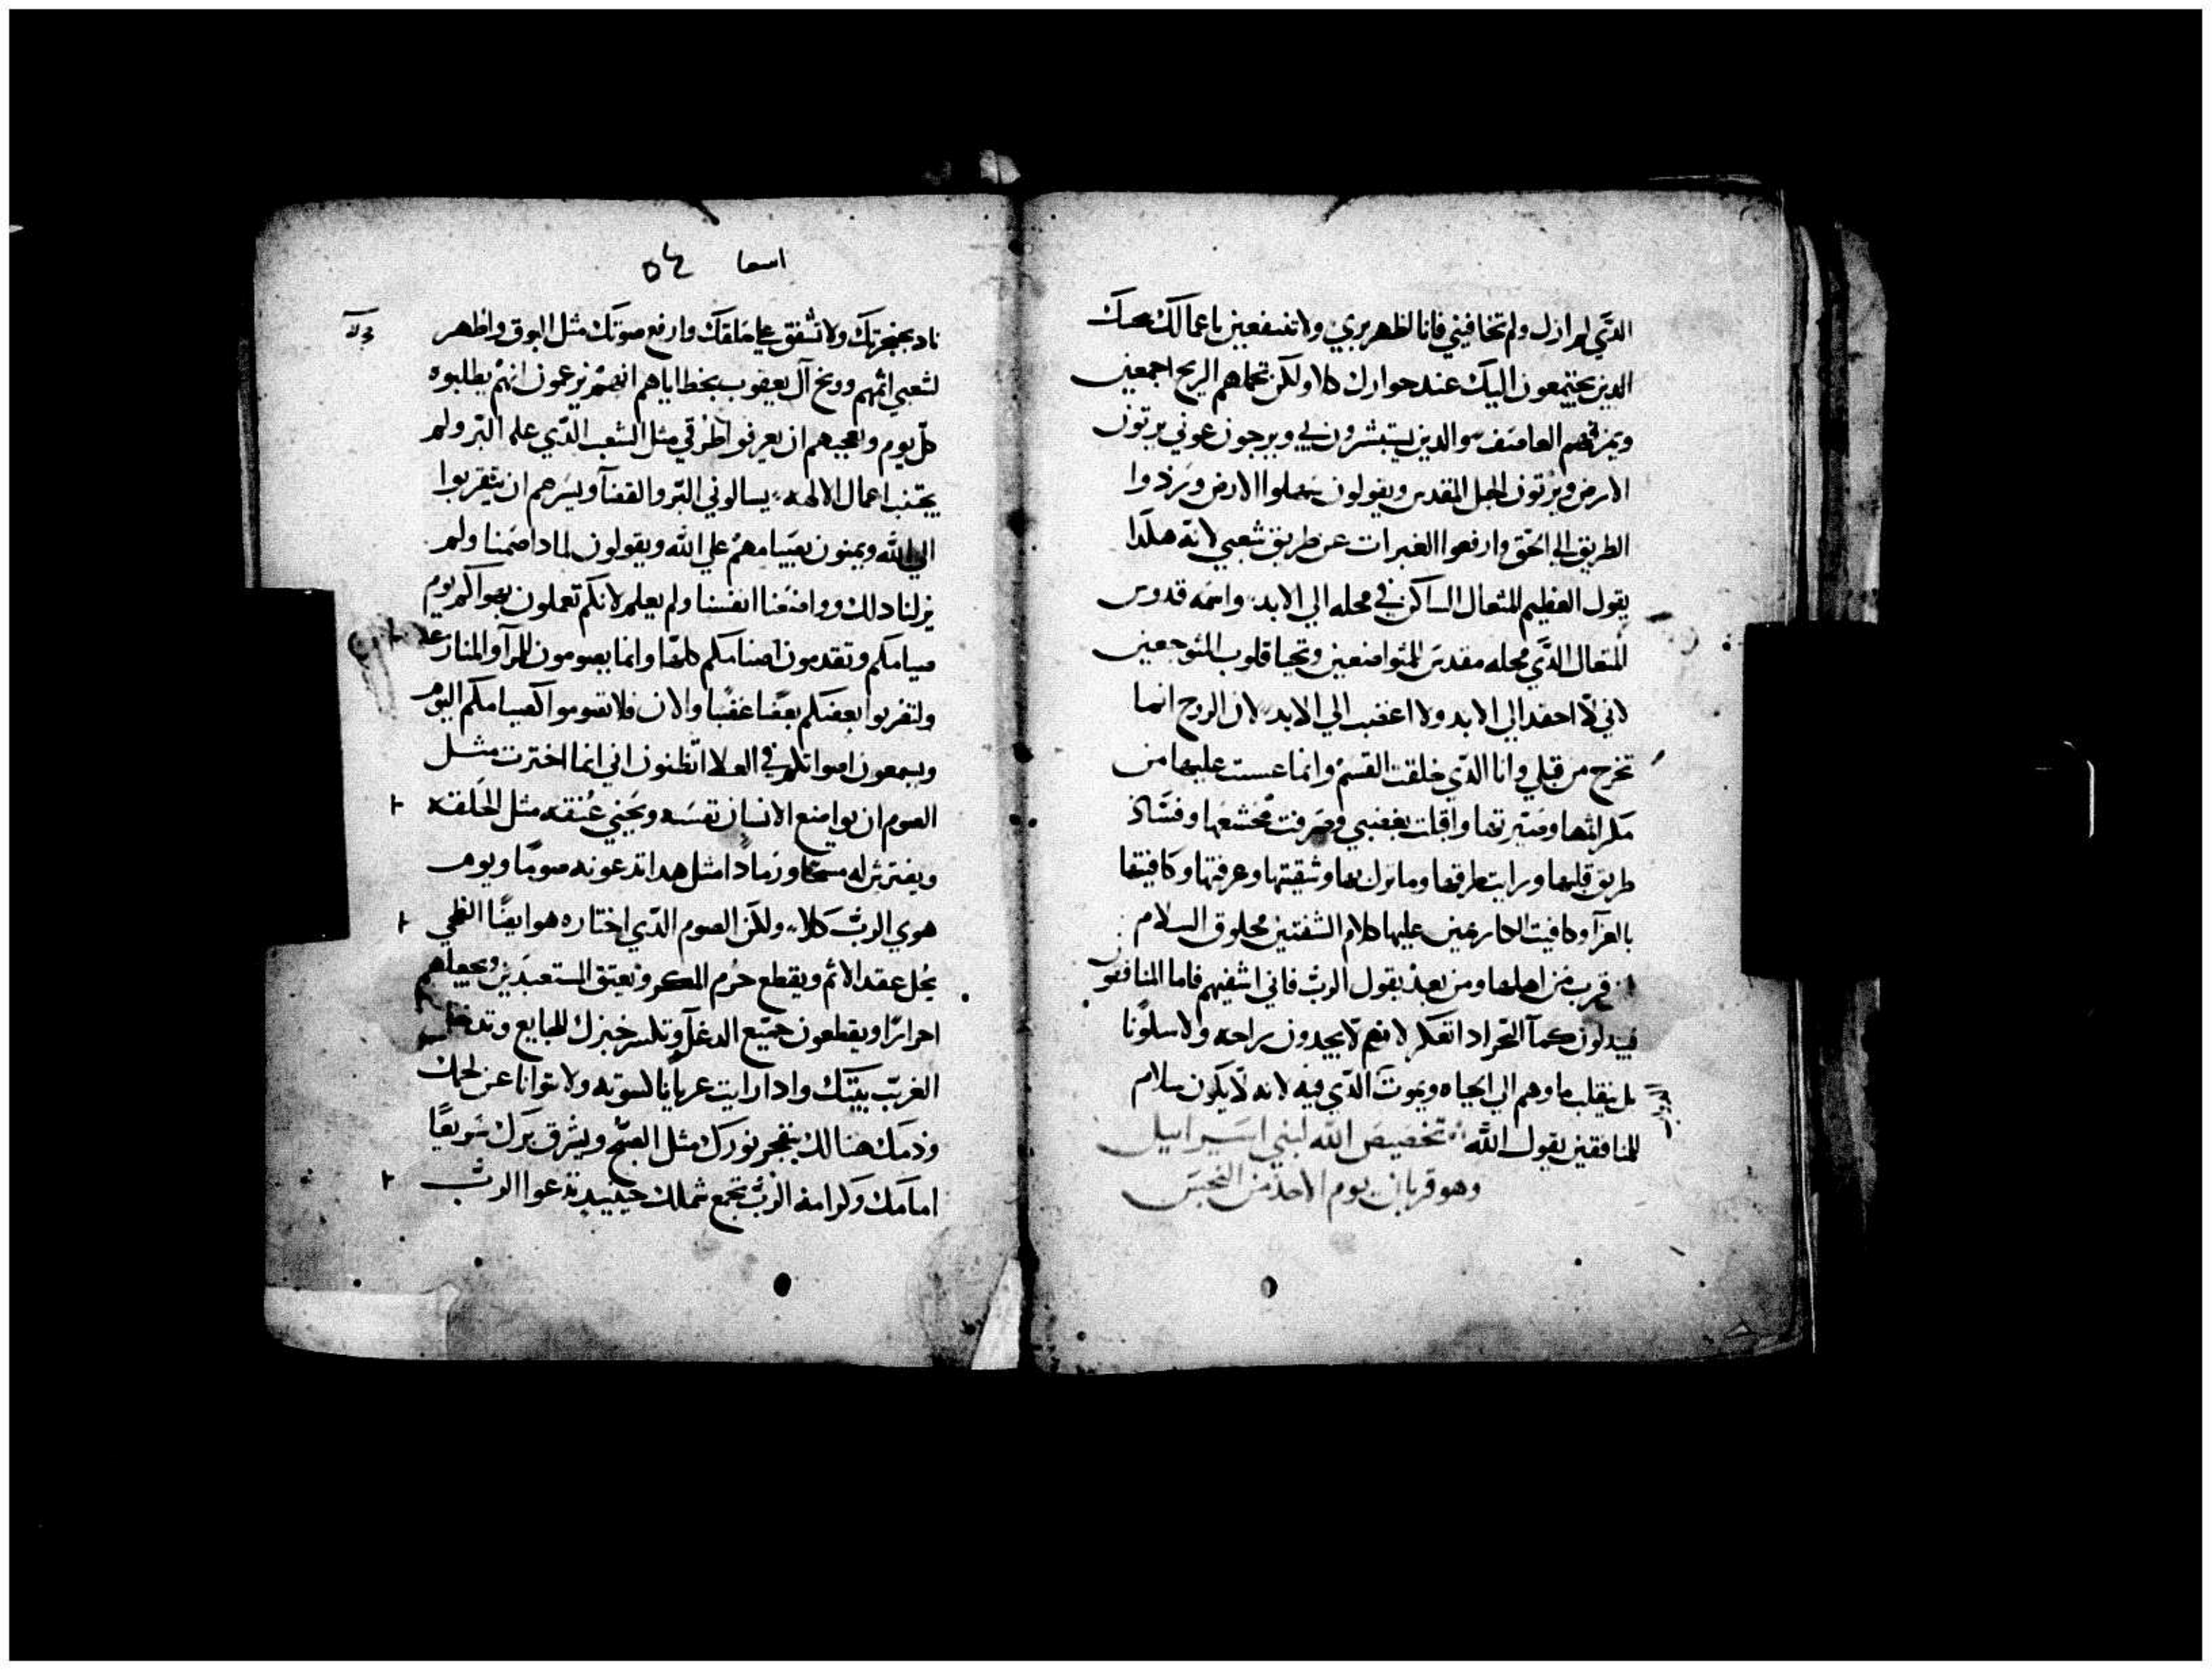 الدي لم ازل ولم تخافيني فانا لظهر بري ولا تنتفعين باعمالك معك
الدين يجتمعون اليك عند جوارك كلا ولكن تحملهم الريح اجمعين
ويمزقهم العاصف والدين يستبشرون بي ويرجون عوني يرثون
الارض ويرثون الجبل المقدس ويقولون سهلوا الارض وردوا
الطريق الي الحق وارفعوا العثرات عن طريق شعبي لانه هكدا
يقول العظيم المتعال الساكن في محله الي الابد واسمه قدوس
المتعال الدي محله مقدس المتواضعين وتحيا قلوب المتوجعين
لاني لا احقد الي الابد ولا اغضب الي الابد لان الروح انما
تخرج من قبلي وانا الدي خلقت القسم وانما عست عليها من
مكرائها وضيرتها واقبلت بغضبي وصرفت مخشعها وفشاد
طريق قلبها ورايت طرقها وشقيتها وعرفتها وكافيتها
بالعزآ وكافيت الحارضين عليها كلام الشفتين مخلوق السلام
قرب من اهلها ومن بعد يقول الرب فاني اشفيهم فاما المنافقون
فيبدلون كمآ البحر ادا تعكر لانهم لا يجدون راحه ولا سلونا
بل ينقلب ماوهم الي الحياه ويموت الدي فيه لانه لا يكون سلام
للمنافقين يقول الله تخصيص الله لبني اسراييل
وهو قربان يوم الاحد من
اسعا
ناد بحنجرتك ولا تشفق علي حلقك وارفع صوتك مثل البوق واظهر
لشعبي اثمهم ووبخ آل يعقوب بخطاياهم انهم يزعمون انهم يطلبوه
كل يوم ويعجبهم ان يعرفوا طرقي مثل الشعب الدي عمل البر ولم
يجتنب اعمال الالهه يسالوني البر والقضآ ويسرهم ان يتقربوا
الي الله ويمنون بصيامهم علي الله ويقولون لمادا صمنا ولم
نر لنا دلك وواضعنا انفسنا ولم يعلم لانكم تعملون بهواكم يوم
صيامكم وتقدمون اصنامكم كلها وانما يصومون للمرآ والمنازعه
ولتضربوا بعضكم بعضا غضبا والان فلا تصوموا كصيامكم اليوم
ويسمعون اصواتكم في العلا اتظنون اني انما اخترت مثل
الصوم ان يواضع الانسان نفسه ويحني عنقه مثل الحلقه
ويفترش له مسحا ورمادا مثل هدا تدعونه صوما ويوم
هوي الرب كلا ولكن الصوم الدي اختاره هو ايضا الدي
يحل عقد الاثم ويقطع حزم المكر وتعتق المستعبدين وتجعلهم
احرارا ويقطعون جميع الدغل وتكسر خبزك للجايع وتدخل
الغريب بيتك وادا رايت عريانا كسوته ولا توانا عن لحمك
ودمك هنالك ينفجر نورك مثل الصبح ويشرق برك سريعا
امامك وكرامة الرب تجمع شملك حينيد تدعوا الرب